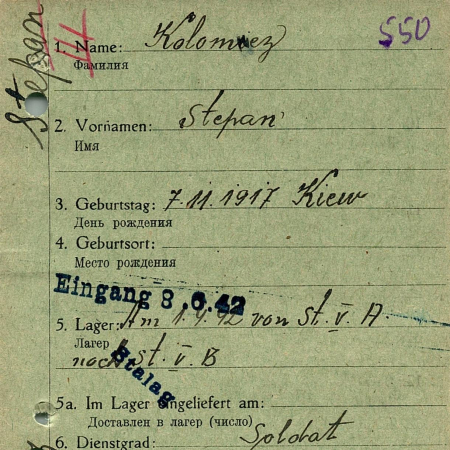 Stepan
550
1. Name: Kolomiez
Фамилия
2. Vornamen: Stepan
Имя
3. Geburtstag: 7.11.1917 Kiew
День рождения
4. Geburtsort:
Место рождения
Eingang 8.6.42
5. Lager: Am 1.4.42 von St. V. A.
Лагерь
nach St. V. B
Stalag
5a. Im Lager eingeliefert am:
Доставлен в лагерь (число)
6. Dienstgrad: Soldat